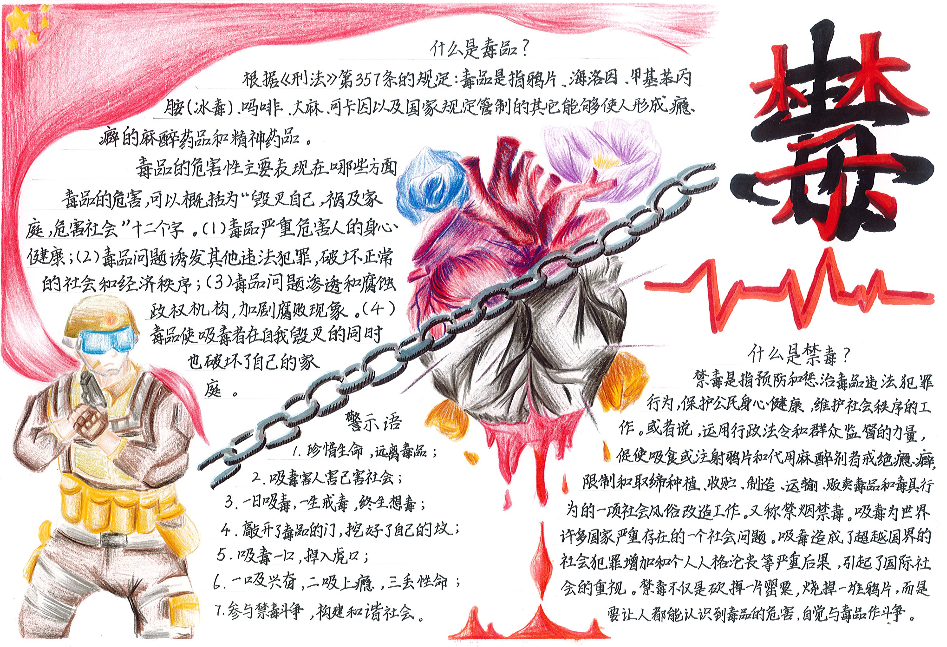 什么是毒品？
根据《刑法》第357条的规定：毒品是指鸦片、海洛因、甲基苯丙
胺(冰毒)、吗啡、大麻、可卡因以及国家规定管制的其它能够使人形成瘾
癖的麻醉药品和精神药品。
毒品的危害性主要表现在哪些方面
毒品的危害，可以概括为“毁灭自己，祸及家
庭，危害社会”十二个字。(1)毒品严重危害人的身心
健康；(2)毒品问题诱发其他违法犯罪，破坏正常
的社会和经济秩序；(3)毒品问题渗透和腐蚀
政权机构，加剧腐败现象。(4)
毒品使吸毒者在自我毁灭的同时
也破坏了自己的家
庭。
警示语
1. 珍惜生命，远离毒品；
2. 吸毒害人害己害社会；
3. 一日吸毒，一生戒毒，终生想毒；
4. 敲开了毒品的门，挖好了自己的坟；
5. 吸毒一口，掉入虎口；
6. 一口及兴奋，二吸上瘾，三丢性命；
7. 参与禁毒斗争，构建和谐社会。
禁毒
什么是禁毒？
禁毒是指预防和惩治毒品违法犯罪
行为，保护公民身心健康，维护社会秩序的工
作。或者说，运用行政法令和群众监督的力量，
促使吸食或注射鸦片和代用麻醉剂者戒绝瘾癖，
限制和取缔种植、收贮、制造、运输、贩卖毒品和毒具行
为的一项社会风俗改造工作。又称禁烟禁毒。吸毒为世界
许多国家严重存在的一个社会问题。吸毒造成了超越国界的
社会犯罪增加和个人人格沦丧等严重后果，引起了国际社
会的重视。禁毒不仅是砍掉一片罂粟，烧掉一堆鸦片，而是
要让人都能认识到毒品的危害，自觉与毒品作斗争。